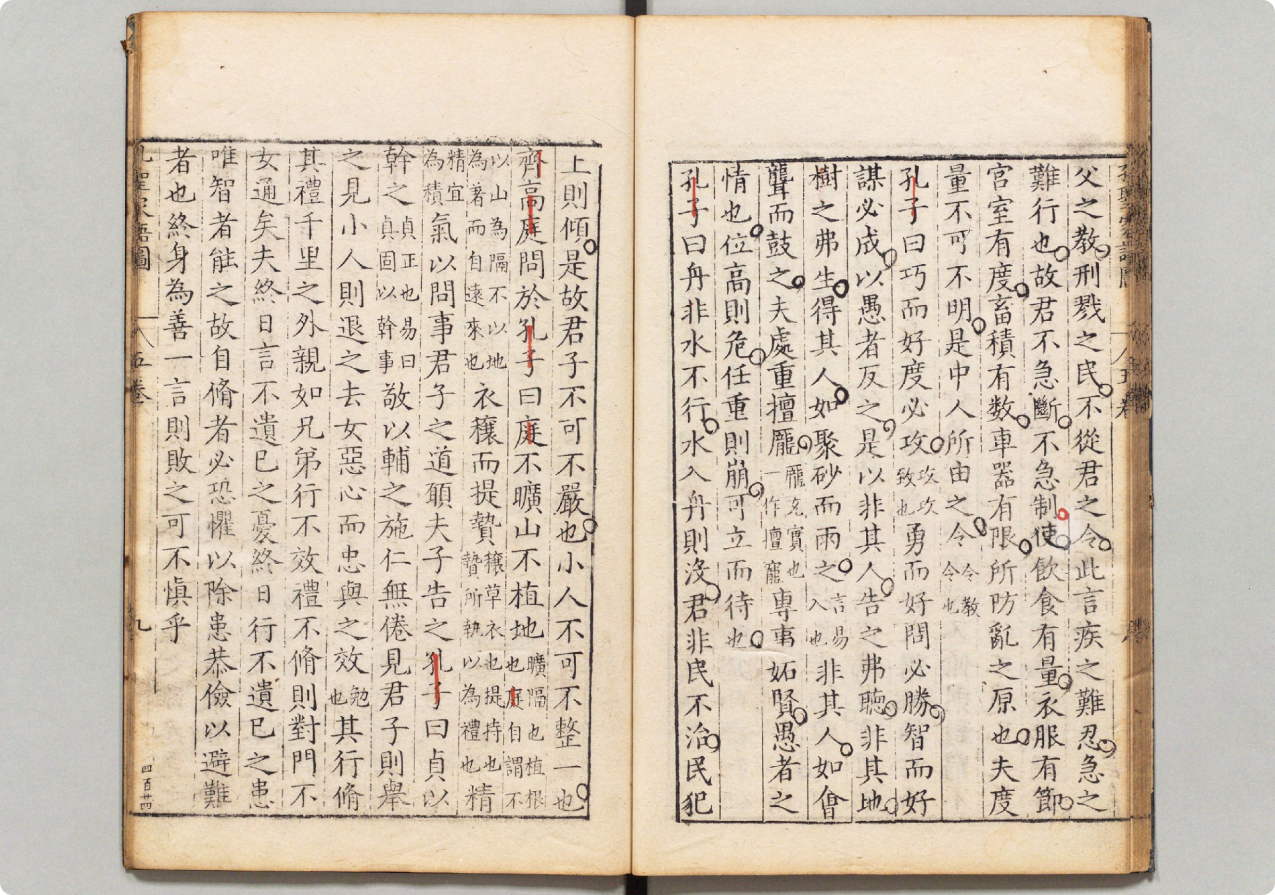 父之教刑戮之民不從君之令此言疾之難忍急之
難行也故君不急斷不急制使飲食有量衣服有節
宮室有度畜積有数車器有限所防亂之原也夫度
量不可不明是中人所由之令令教令也
孔子曰巧而好度必攻攻攻致也勇而好問必勝智而好
謀必成以愚者反之是以非其人告之弗聽非其地
樹之弗生得其人如聚砂而雨之言易入也非其人如會
聾而鼓之夫處重擅龐龐充實也一作擅寵專事妬賢愚者之
情也位高則危任重則崩可立而待也
孔子曰舟非水不行水入舟則沒君非民不治民犯
上則傾是故君子不可不嚴也小人不可不整一也
齊高庭問於孔子曰庭不曠山不植地曠隔也植根也庭自謂不
以山為隔不以地為著而自遠來也衣穰而提贄穰草衣也提持也贄所執以為禮也精
精宜為積氣以問事君子之道願夫子告之孔子曰貞以
幹之貞正也易曰貞固以幹事敬以輔之施仁無倦見君子則舉
之見小人則退之去女惡心而忠與之效勉也其行脩
其禮千里之外親如兄弟行不效禮不脩則對門不
女通矣夫終日言不遺已之憂終日行不遺已之患
唯智者能之故自脩者必恐懼以除患恭儉以避難
者也終身為善一言則敗之可不慎乎
五卷
九
四百廿四